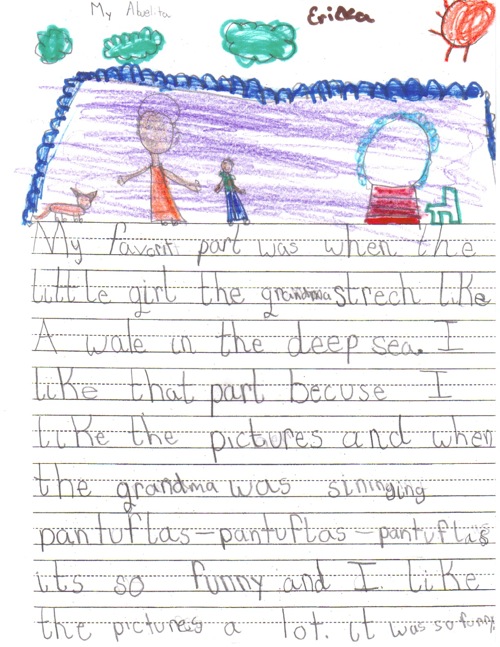 My Abuelita
Ericka
My favorit part was when the
little girl the grandma strech like
A wale in the deep sea. I
like that part becuse I
like the pictures and when
the grandma was sininging
pantuflas-pantuflas-pantuflas
its so funny and I like
the pictures a lot. it was so funny.